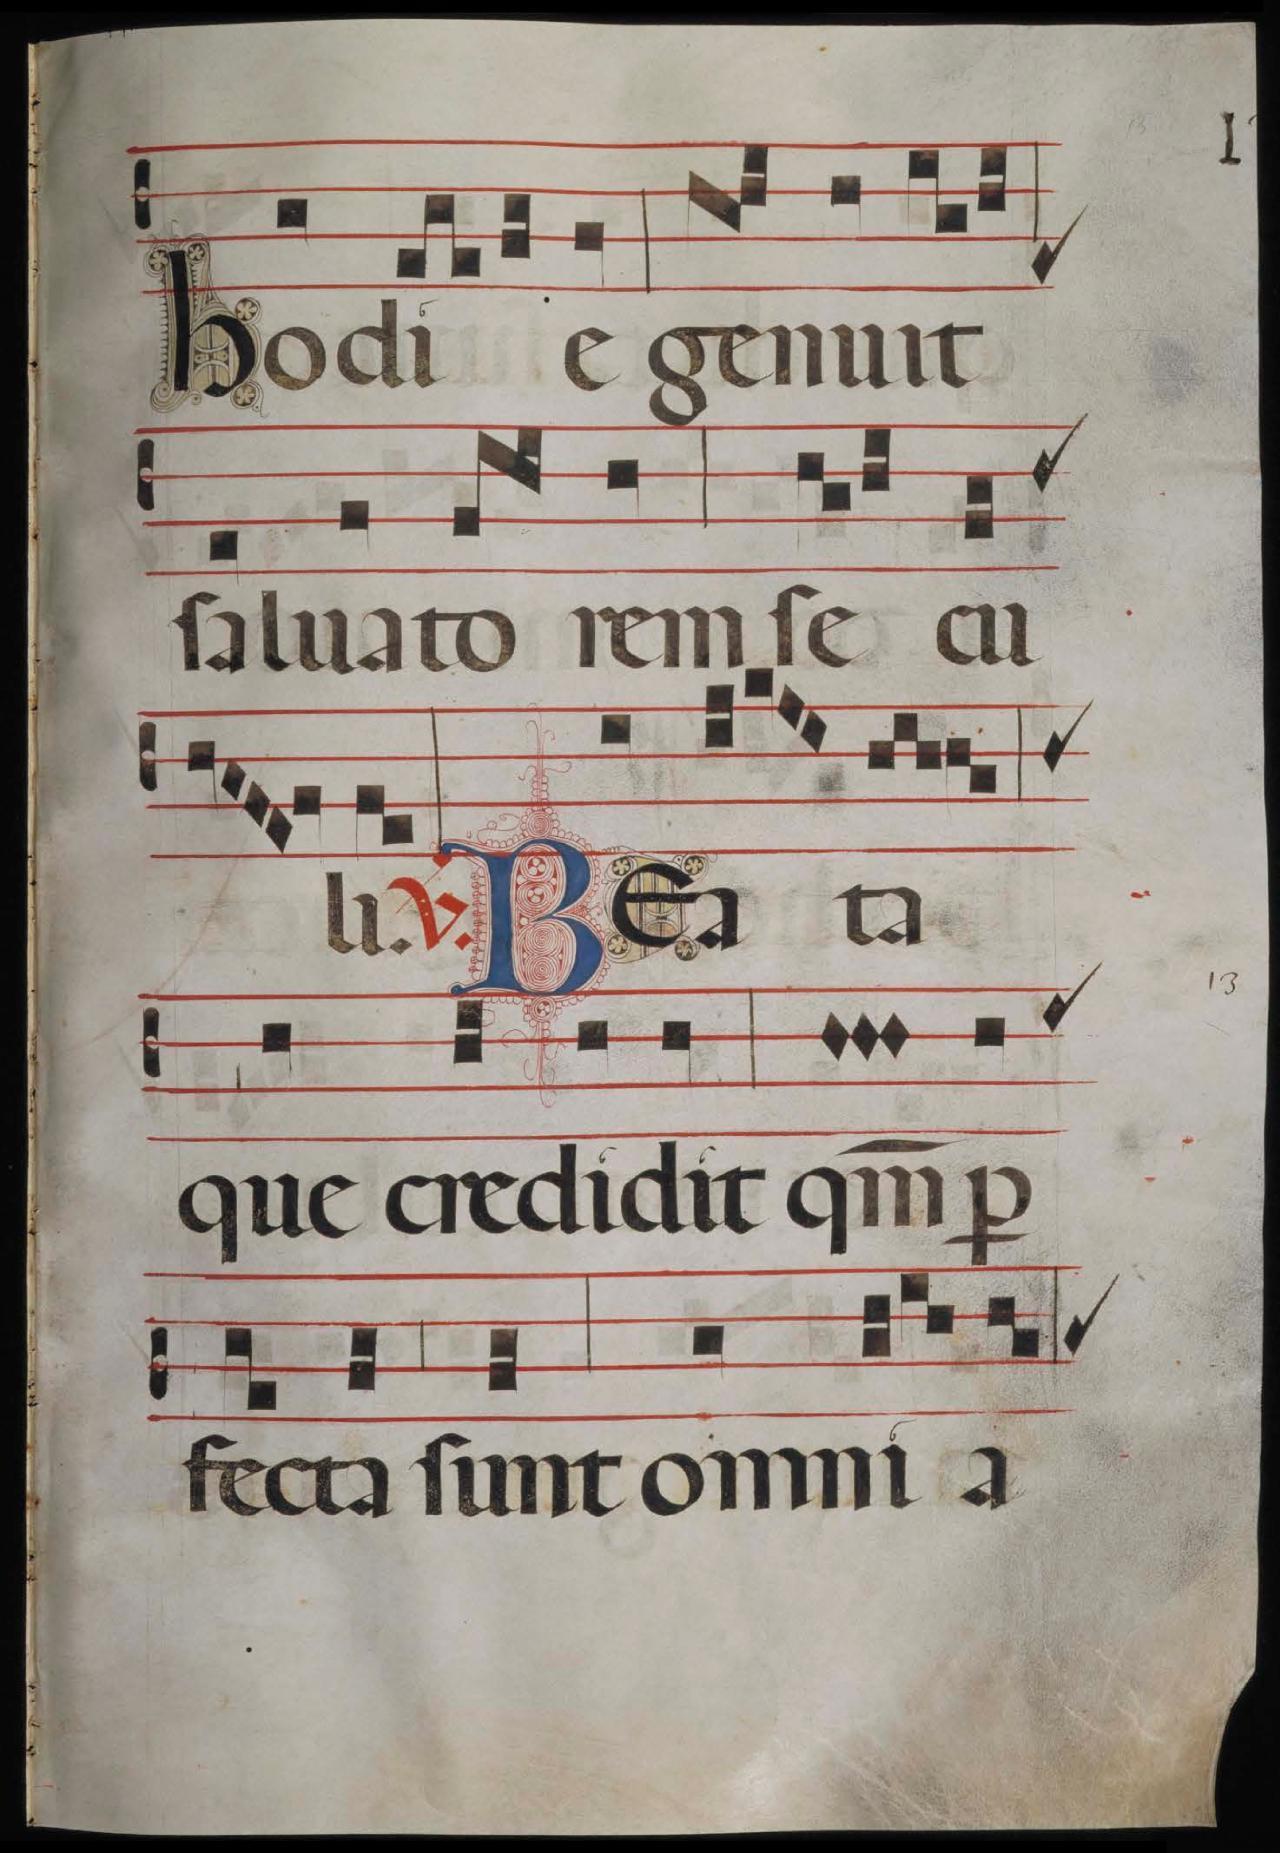 I
hodi e genuit
saluato rem se cu
li. V. BEa ta
13
que credidit qm̄ ꝑ
fecta sunt omni a